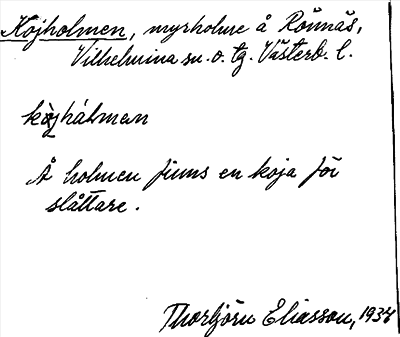 Kojholmen, myrholme å Rönnäs,
Vilhelmina sn. o. tg. Västerb. l.
kòjhálmen
Å holmen finns en koja för
slåttare.
Thorbjörn Eliasson, 1934